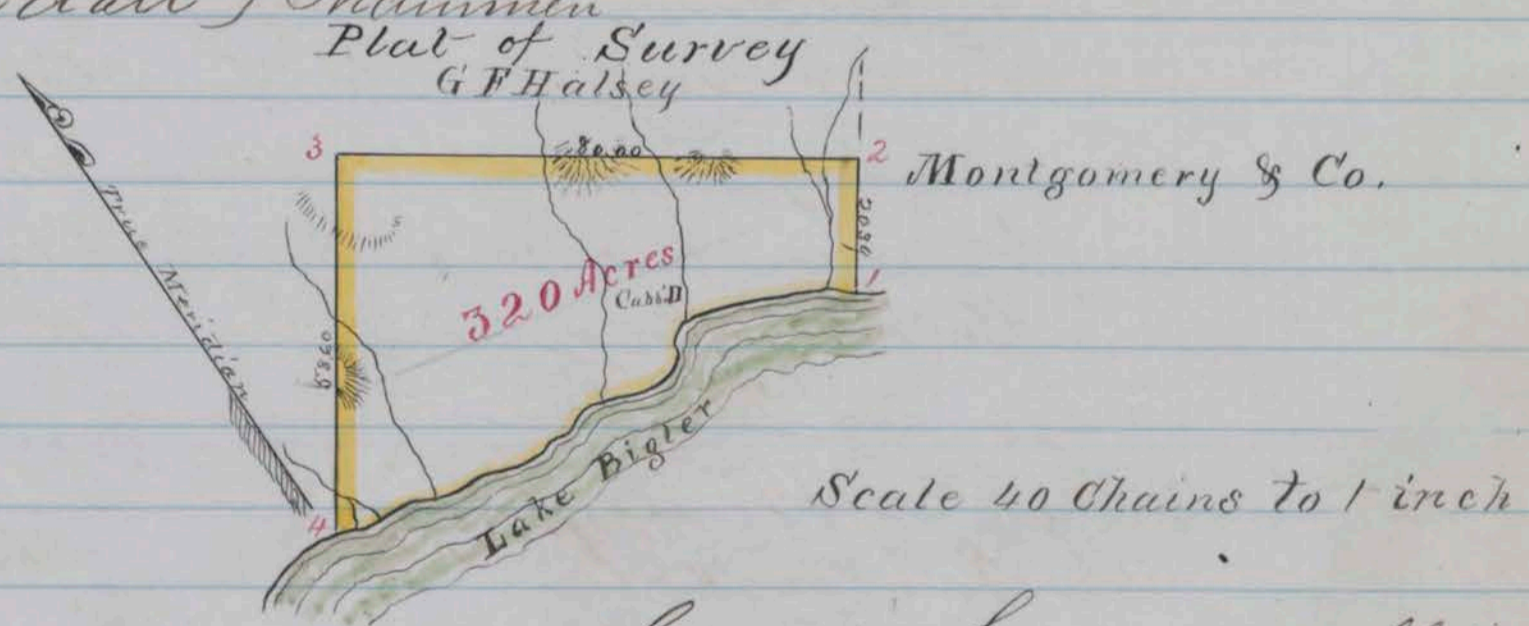 Plat of Survey
G F Halsey
3
80.00
2
Montgomery & Co.
True Meridian
20.24
320 Acres
Cabin
1
58.60
Lake Bigler
Scale 40 Chains to 1 inch
4